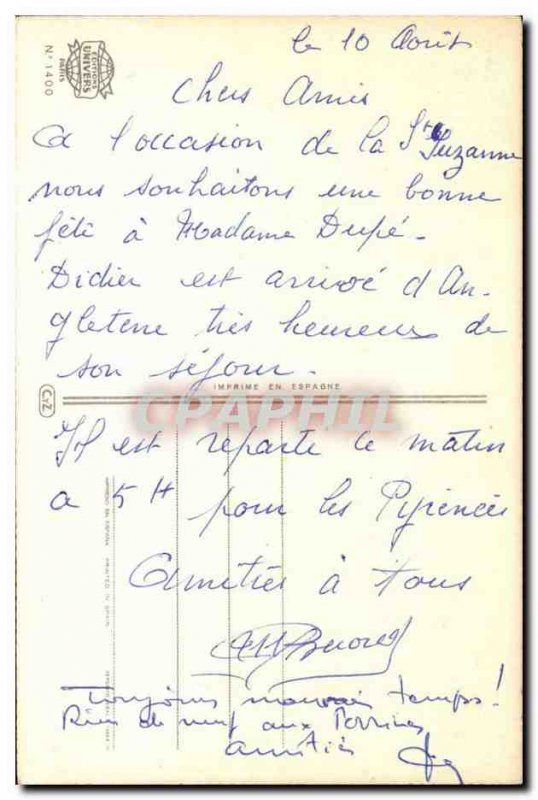 EDITIONS
UNIVERS
PARIS
N° 1400
le 10 Août
Chers Amis
A l'occasion de la Ste Suzanne
nous souhaitons une bonne
fête à Madame Dupé.
Didier est arrivé d'An-
gleterre très heureux de
son séjour.
IMPRIME EN ESPAGNE
CyZ
CPAPHIL
Il est reparti ce matin
a 5H pour les Pyrénées
Amitiés à tous
Toujours mauvais temps!
Rien de neuf aux
amitiés